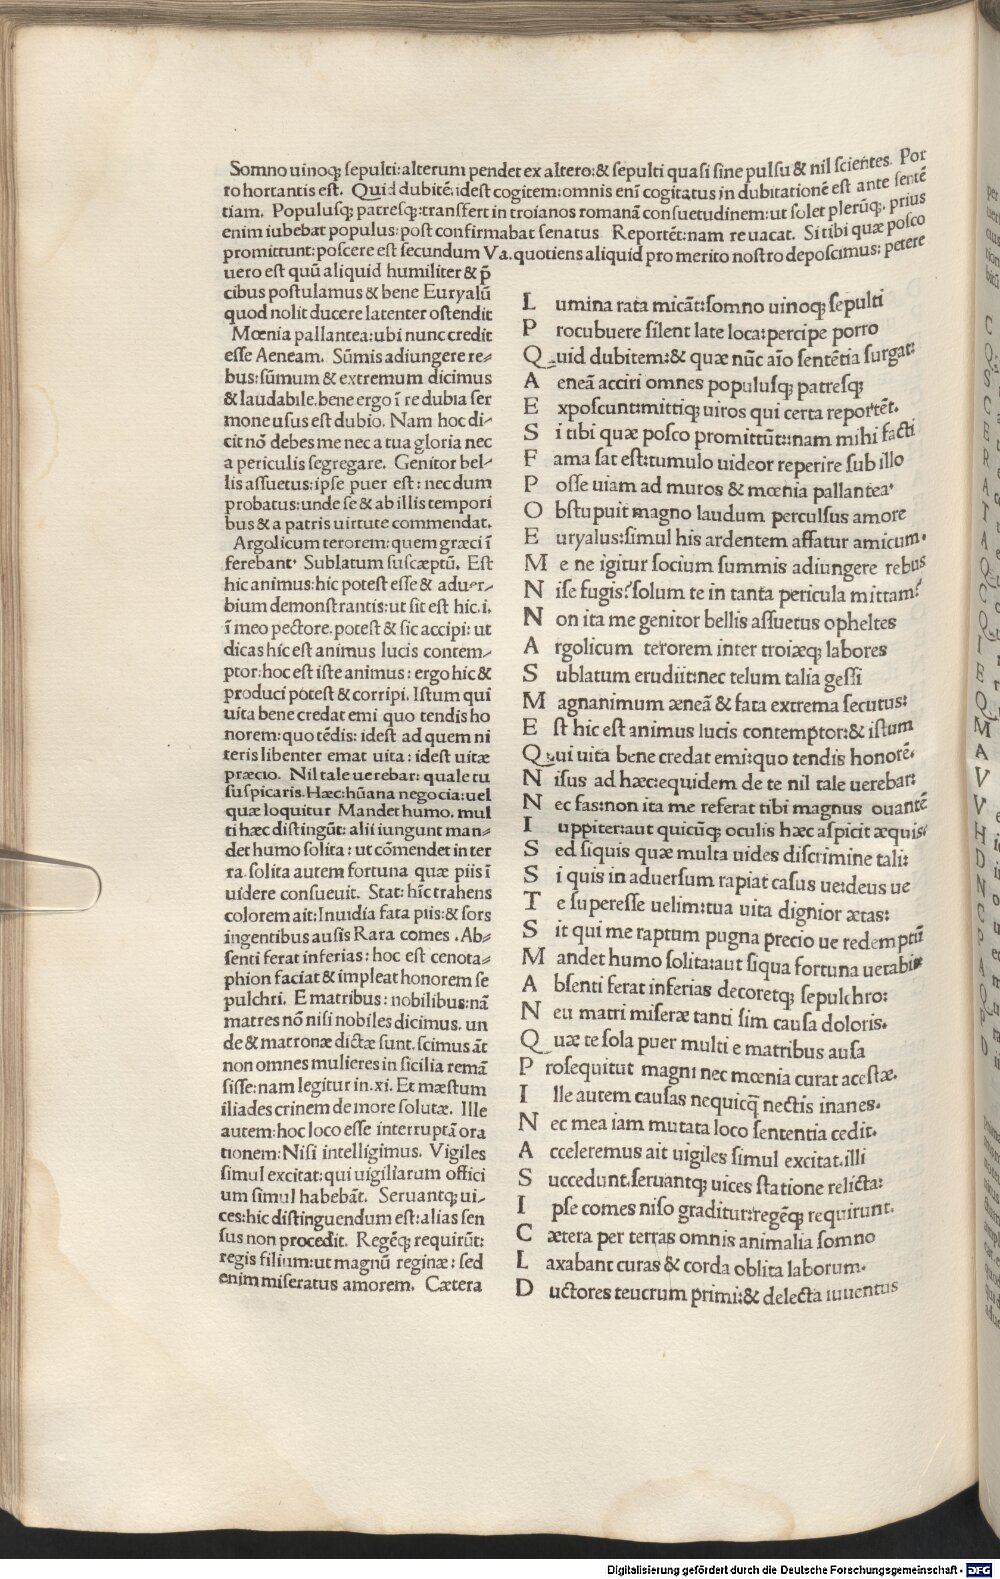 Somno uinoq; sepulti:alterum pendet ex altero:& sepulti quasi sine pulsu & nil scientes. Por
ro hortantis est. Quid dubitē.idest cogitem:omnis enī cogitatus in dubitationē est ante sentē
tiam. Populusq; patresq;:transfert in troianos romanā consuetudinem:ut solet plerūq;. prius
enim iubebat populus:post confirmabat senatus Reportēt:nam reuacat. Si tibi quæ posco
promittunt:poscere est secundum Va.quotiens aliquid pro merito nostro deposcimus: petere
uero est quū aliquid humiliter & p̄
cibus postulamus & bene Euryalū
quod nolit ducere latenter ostendit
Mœnia pallantea:ubi nunc credit
esse Aeneam. Sūmis adiungere re-
bus:sūmum & extremum dicimus
& laudabile.bene ergo ī re dubia ser
mone usus est dubio. Nam hoc di-
cit nō debes me nec a tua gloria nec
a periculis segregare. Genitor bel-
lis assuetus:ipse puer est: nec dum
probatus:unde se & ab illis tempori
bus & a patris uirtute commendat.
Argolicum terorem:quem græci ī
ferebant. Sublatum suscæptū. Est
hic animus:hic potest esse & aduer-
bium demonstrantis:ut sit est hic.i.
ī meo pectore.potest & sic accipi: ut
dicas hic est animus lucis contem-
ptor:hoc est iste animus: ergo hic &
produci potest & corripi. Istum qui
uita bene credat emi quo tendis ho
norem:quo tēdis: idest ad quem ni
teris libenter emat uita: idest uitæ
præcio. Nil tale uerebar: quale tu
suspicaris.Hæc:hūana negocia:uel
quæ loquitur Mandet humo. mul
ti hæc distingūt: alii iungunt man-
det humo solita: ut cōmendet in ter
ra. solita autem fortuna quæ piis ī
uidere consueuit. Stat: hic trahens
colorem ait:Inuidia fata piis:& sors
ingentibus ausis Rara comes .Ab-
senti ferat inferias: hoc est cenota-
phion faciat & impleat honorem se
pulchri. E matribus: nobilibus:nā
matres nō nisi nobiles dicimus. un
de & matronæ dictæ sunt.scimus āt
non omnes mulieres in sicilia remā
sisse:nam legitur in.xi. Et mæstum
iliades crinem de more solutæ. Ille
autem:hoc loco esse interruptā ora
tionem:Nisi intelligimus. Vigiles
simul excitat:qui uigiliarum offici
um simul habebāt. Seruantq; ui-
ces:hic distinguendum est:alias sen
sus non procedit. Regēq; requirūt:
regis filium:ut magnū reginæ: sed
enim miseratus amorem. Cætera
L umina rata micāt:somno uinoq; sepulti
P rocubuere silent late loca:percipe porro
Q uid dubitem:& quæ nūc aīo sentētia surgat:
A eneā acciri omnes populusq; patresq;
E xposcunt:mittiq; uiros qui certa reportēt.
S i tibi quæ posco promittūt:nam mihi facti
F ama sat est:tumulo uideor reperire sub illo
P osse uiam ad muros & mœnia pallantea.
O bstupuit magno laudum perculsus amore
E uryalus:simul his ardentem affatur amicum.
M e ne igitur socium summis adiungere rebus
N ise fugis?solum te in tanta pericula mittam?
N on ita me genitor bellis assuetus opheltes
A rgolicum terorem inter troiæq; labores
S ublatum erudiit:nec telum talia gessi
M agnanimum æneā & fata extrema secutus:
E st hic est animus lucis contemptor:& istum
Q ui uita bene credat emi:quo tendis honorē.
N isus ad hæc:equidem de te nil tale uerebar:
N ec fas:non ita me referat tibi magnus ouantē
I uppiter:aut quicūq; oculis hæc aspicit æquis.
S ed siquis quæ multa uides discrimine tali:
S i quis in aduersum rapiat casus ue:deus ue
T e superesse uelim:tua uita dignior ætas:
S it qui me raptum pugna precio ue redemptū
M andet humo solita:aut siqua fortuna uetabit
A bsenti ferat inferias decoretq; sepulchro:
N eu matri miseræ tanti sim causa doloris.
Q uæ te sola puer multi e matribus ausa
P rosequitut magni nec mœnia curat acestæ.
I lle autem causas nequicq̄ nectis inanes.
N ec mea iam mutata loco sententia cedit.
A cceleremus ait uigiles simul excitat.illi
S uccedunt.seruantq; uices statione relicta:
I pse comes niso graditur:regēq; requirunt.
C ætera per terras omnis animalia somno
L axabant curas & corda oblita laborum.
D uctores teucrum primi:& delecta iuuentus
Digitalisierung gefördert durch die Deutsche Forschungsgemeinschaft - DFG